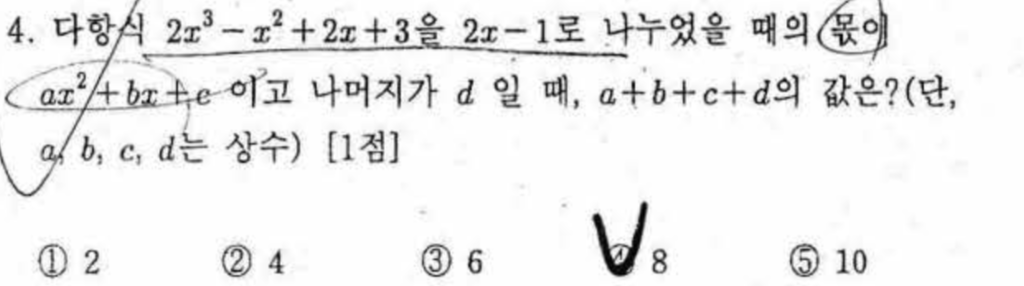 4. 다항식 2x³-x²+2x+3을 2x-1로 나누었을 때의 몫이
ax²+bx+c 이고 나머지가 d 일 때, a+b+c+d의 값은?(단,
a, b, c, d는 상수) [1점]
① 2 ② 4 ③ 6 ④ 8 ⑤ 10